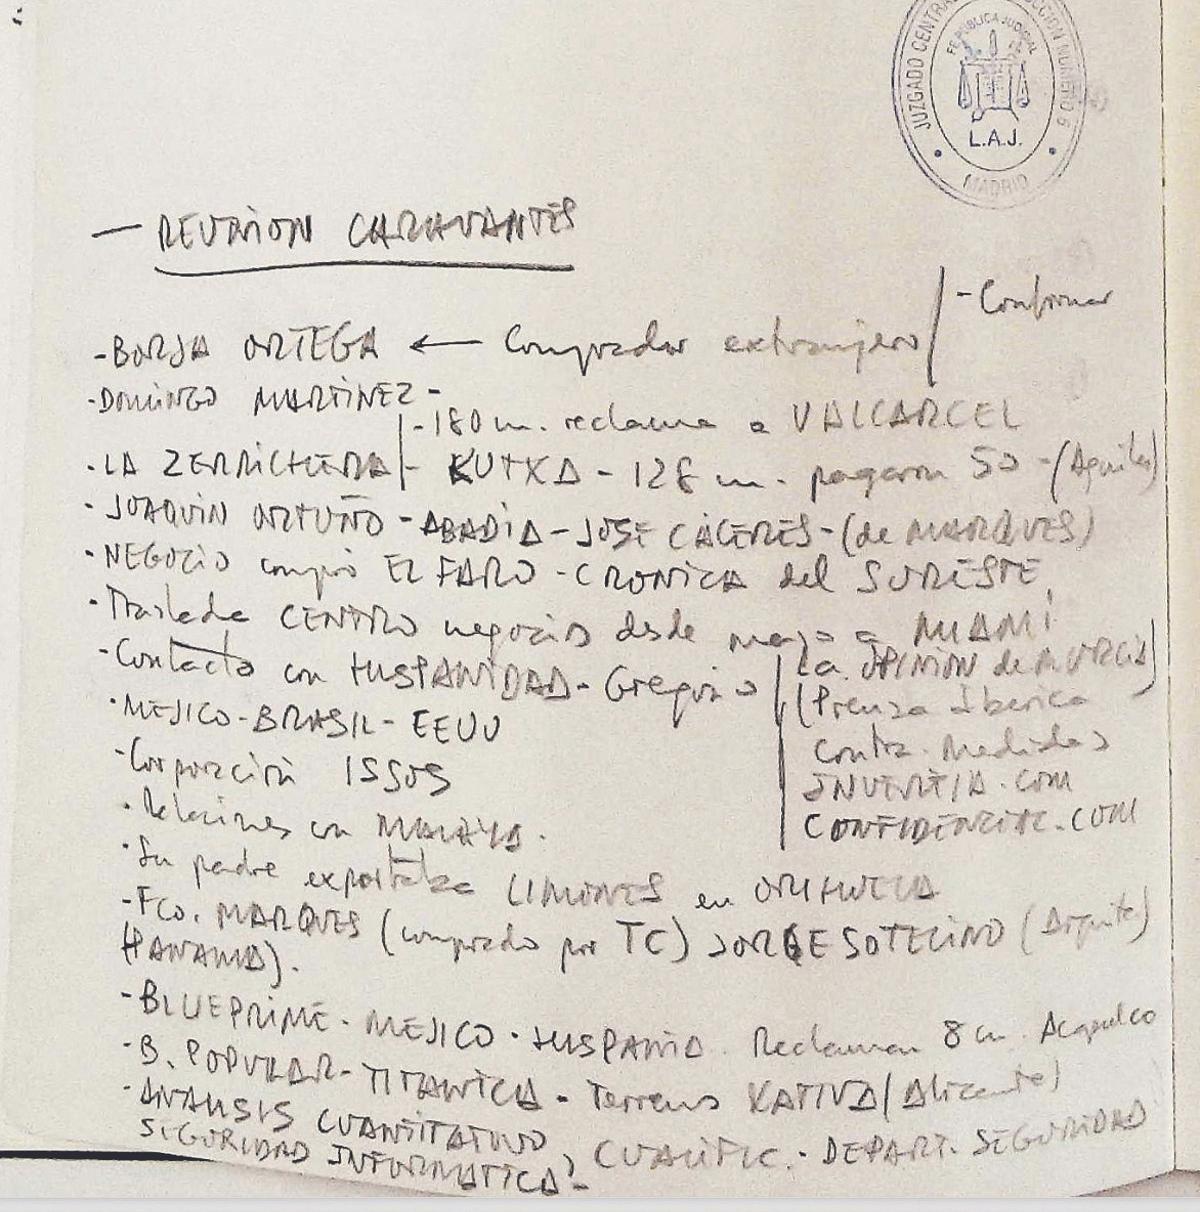 JUZGADO CENTRAL INSTRUCCION NUMERO 6
FE PUBLICA JUDICIAL
L.A.J.
MADRID
— REUNION CARAVANTES
- Confirmar
- BORJA ORTEGA ← Comprador extranjero
- DOMINGO MARTINEZ -
- 180 m. reclama a VALCARCEL
- LA ZERRICHERA - KUTXA - 128 m. pagaron 50 - (Aguilas)
- JOAQUIN ORTUÑO - ABADIA - JOSE CÁCERES - (de MARQUES)
- NEGOCIO compró EL FARO - CRONICA del SURESTE
- Traslada CENTRO negocios desde mayo a MIAMI
- Contacto con HISPANIDAD - Gregorio
La OPINION de MURCIA)
(Prensa Iberica
Contra-Medidas
INVERTIA.COM
CONFIDENCIAL.COM
- MEJICO - BRASIL - EEUU
- Corporación ISSOS
- Relaciones con
- Su padre exportaba LIMONES en ORIHUELA
- FCO. MARQUES (comprado por TC) JORGE SOTELINO (Arquite)
(PANAMA).
- BLUEPRIME - MEJICO - HISPANIA. Reclaman 8 m. Acapulco
- B. POPULAR - TITANICA - Terrenos XATIVA (Alicante)
- ANALISIS CUANTITATIVO, CUALIFIC. - DEPART. SEGURIDAD
SEGURIDAD INFORMATICA -